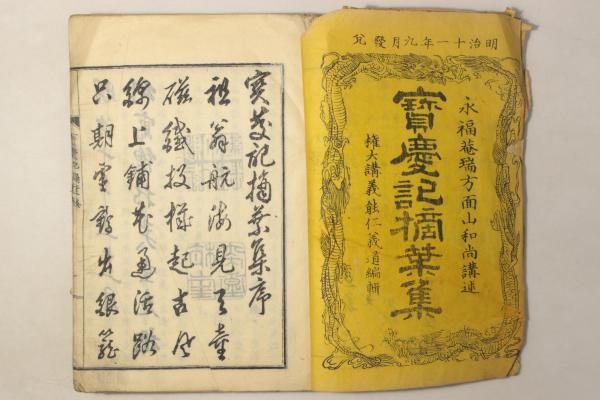 明治十一年九月發兌
永福菴瑞方面山和尚講述
寶慶記摘葉集
權大講義能仁義道編輯
寶慶記摘葉集序
祖翁航海見天童
磁鐵投樣起古風
線上鋪花通活路
只期室鶏出銀籠